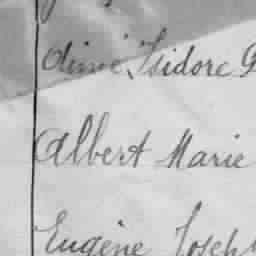 Aimé Isidore G
Albert Marie
Eugène Joseph